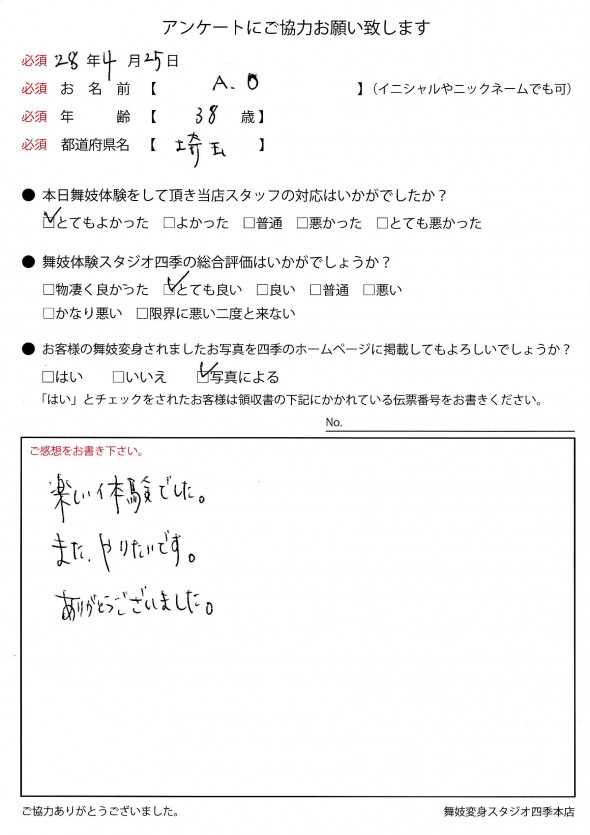 アンケートにご協力お願い致します
必須 28年4月25日
必須 お名前【 A.O 】（イニシャルやニックネームでも可）
必須 年齢【 38 歳】
必須 都道府県名【 埼玉 】
● 本日舞妓体験をして頂き当店スタッフの対応はいかがでしたか？
☑とてもよかった □よかった □普通 □悪かった □とても悪かった
● 舞妓体験スタジオ四季の総合評価はいかがでしょうか？
□物凄く良かった ☑とても良い □良い □普通 □悪い
□かなり悪い □限界に悪い二度と来ない
● お客様の舞妓変身されましたお写真を四季のホームページに掲載してもよろしいでしょうか？
□はい □いいえ ☑写真による
「はい」とチェックをされたお客様は領収書の下記にかかれている伝票番号をお書きください。
No.
ご感想をお書き下さい。
楽しい体験でした。
また、やりたいです。
ありがとうございました。
ご協力ありがとうございました。 舞妓変身スタジオ四季本店